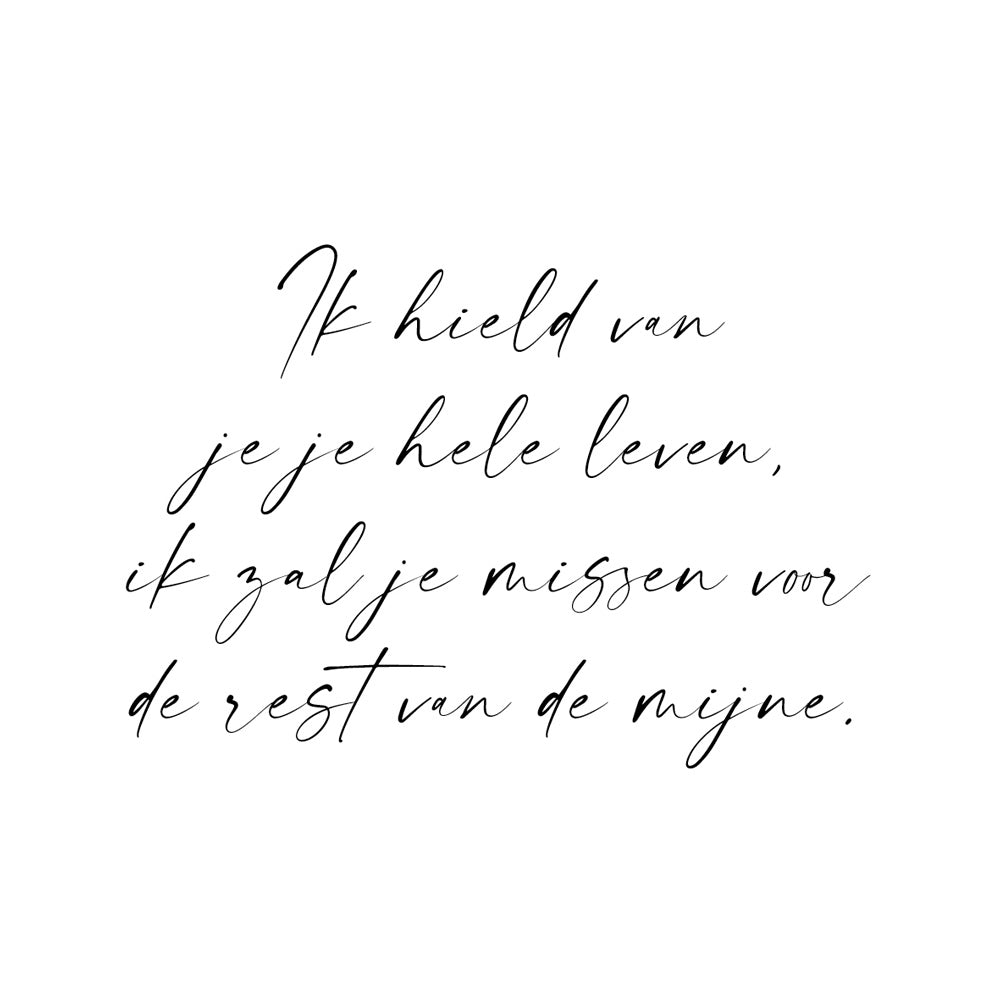 Ik hield van
je je hele leven,
ik zal je missen voor
de rest van de mijne.